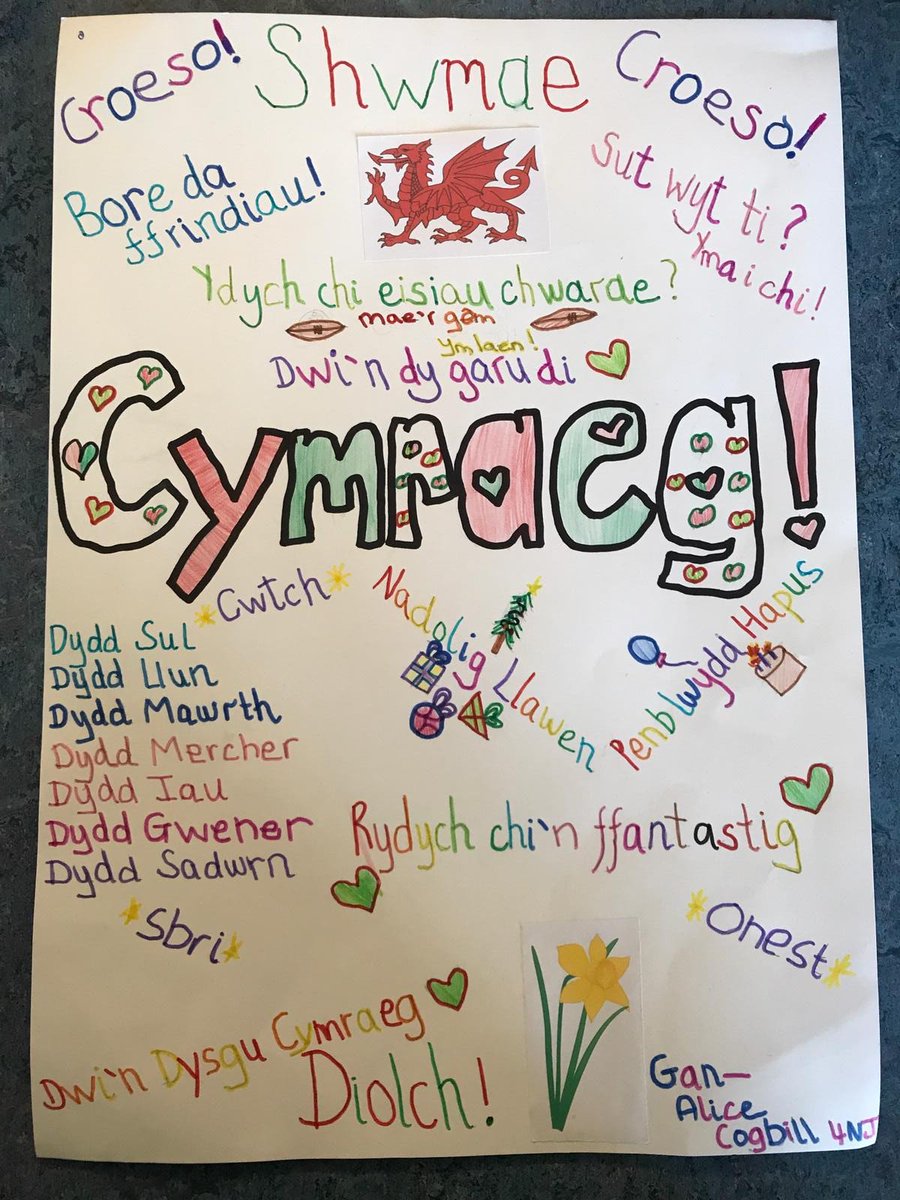 Croeso! Shwmae Croeso!
Bore da
ffrindiau!
Sut wyt ti?
Yma i chi!
Ydych chi eisiau chwarae?
mae'r gêm
Ymlaen!
Dwi'n dy garu di
Cymraeg!
Cwtch
Dydd Sul
Dydd Llun
Dydd Mawrth
Dydd Mercher
Dydd Iau
Dydd Gwener
Dydd Sadwrn
Nadolig Llawen
Penblwydd Hapus
Rydych chi'n ffantastig
Sbri
Onest
Dwi'n Dysgu Cymraeg
Diolch!
Gan-
Alice
Cogbill 4NJ